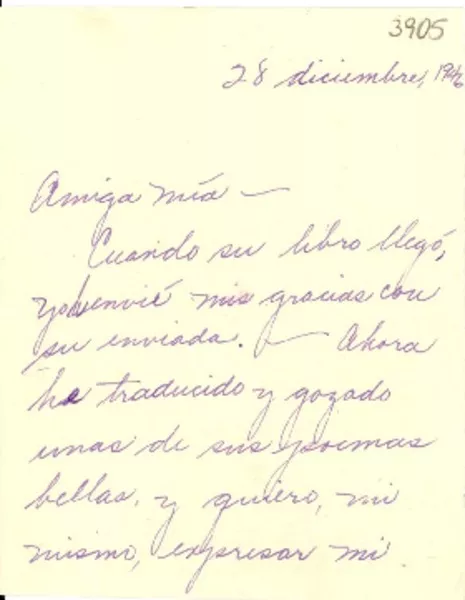 3905
28 diciembre, 1946
Amiga mía —
Cuando su libro llegó,
yo envié mis gracias con
su enviada. — Ahora
he traducido y gozado
unas de sus poemas
bellas, y quiero, mi
mismo, expresar mi